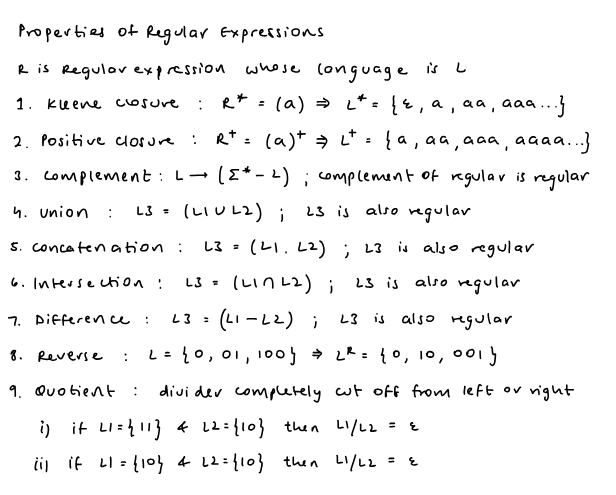 Properties of Regular Expressions
R is Regular expression whose language is L
1. Kleene closure : R* = (a) ⇒ L* = {ε, a, aa, aaa...}
2. Positive closure : R⁺ = (a)⁺ ⇒ L⁺ = {a, aa, aaa, aaaa...}
3. Complement : L → (Σ* - L) ; complement of regular is regular
4. Union : L3 = (L1 ∪ L2) ; L3 is also regular
5. Concatenation : L3 = (L1. L2) ; L3 is also regular
6. Intersection : L3 = (L1 ∩ L2) ; L3 is also regular
7. Difference : L3 = (L1 - L2) ; L3 is also regular
8. Reverse : L = {0, 01, 100} ⇒ Lᴿ = {0, 10, 001}
9. Quotient : divider completely cut off from left or right
i) if L1={11} & L2={10} then L1/L2 = ε
ii) if L1={10} & L2={10} then L1/L2 = ε